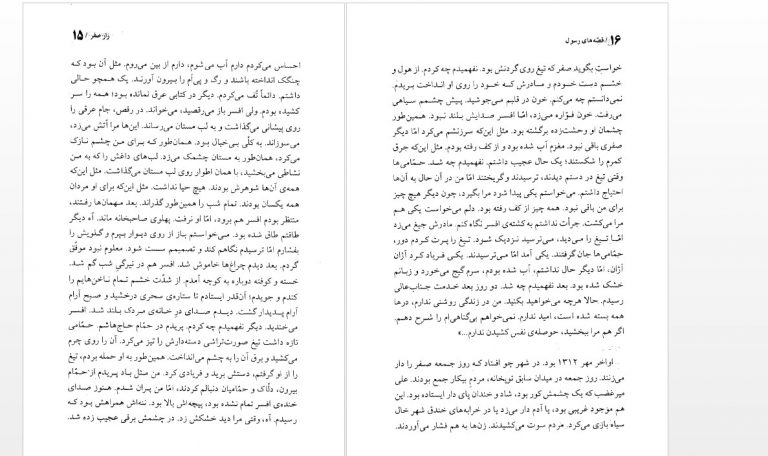 راز صفر / ۱۵
احساس می‌کردم دارم آب می‌شوم، دارم از بین می‌روم. مثل آن بود که
چنگک انداخته باشند و رگ و پی‌اَم را بیرون آورند. یک همچو حالی
داشتم. دائماً تُف می‌کردم. دیگر در کتابی عرق نمانده بود؛ همه را سر
کشید، بودم. ولی افسر باز می‌رقصید، می‌خواند. در رقص، جام عرقی را
روی پیشانی می‌گذاشت و به لب مستان می‌رساند. این‌ها مرا آتش می‌زد،
می‌سوزاند. به کلّی بی‌خیال بود. همان‌طور که برای من چشم نازک
می‌کرد، همان‌طور به مستان چشمک می‌زد. لب‌های داغش را که به من
نشاطی می‌بخشید، با همان اطوار روی لب مستان می‌گذاشت. مثل این‌که
همه‌ی آن‌ها شوهرش بودند. هیچ حیا نداشت. مثل این‌که برای او مردان
همه یکسان بودند. تمام شب را همین‌طور گذراند. بعد مهمان‌ها رفتند،
منتظر بودم افسر هم برود، امّا او نرفت. پهلوی صاحبخانه ماند. آه دیگر
طاقتم طاق شده بود. می‌خواستم بناز از روی دیوار بپرم و گلویش را
بفشارم امّا ترسیدم نگاهم کند و تصمیمم سست شود. معلوم نبود موفّق
گردم. بعد دیدم چراغ‌ها خاموش شد. افسر هم در تیرگیِ شب گم شد.
خسته و کوفته دوباره به کوچه آمدم. از شدّت خشم تمام ناخن‌هایم را
کندم و جویدم؛ آن‌قدر ایستادم تا ستاره‌ی سحری درخشید و صبح آرام
آرام پدیدار گشت. دیدم صدای درِ خانه‌ی مردک بلند شد. افسر
می‌خندید. دیگر نفهمیدم چه کردم. پریدم در حمّام حاج‌هاشم. حمّامی
تازه داشت تیغ صورت‌تراشی دسته‌دارش را تیز می‌کرد. آن را روی چرم
می‌کشید و برق آن را به چشم می‌انداخت. همین‌طور به او حمله بردم، تیغ
را از او گرفتم، دستش برید و فریادی کرد. من صاف پریدم از حمّام
بیرون، دلّاک و حمّامیان دنبالم کردند، امّا من پران شدم. هنوز صدای
خنده‌ی افسر تمام نشده بود، پیچه‌اش بالا بود. ننه‌اش همراهش بود که
رسیدم. آه، وقتی مرا دید خشکش زد. در چشمش برقی عجیب زده شد.
۱۶ / قصّه‌های رسول
خواست بگوید صفر که تیغ روی گردنش بود. نفهمیدم چه کردم. از هول و
خشم دست خودم و مادرش که خود را روی او انداخت بریدم.
نمی‌دانستم چه می‌کنم. خون در قلبم می‌جوشید. پیش چشمم سیاهی
می‌رفت. خون فوّاره می‌زد، امّا افسر صدایش بلند نبود. همین‌طور
چشمان او وحشت‌زده برگشته بود. مثل این‌که سرزنشم می‌کرد امّا دیگر
صفری باقی نبود. مغزم آب شده بود و از کف رفته بودم. مثل این‌که جرق
کمرم را شکستند؛ یک حال عجیب داشتم. نفهمیدم چه شد. حمّامی‌ها
وقتی تیغ در دستم دیدند، ترسیدند و گریختند امّا من در آن حال به آن‌ها
احتیاج داشتم. می‌خواستم یکی پیدا شود مرا بگیرد، چون دیگر هیچ چیز
برای من باقی نبود. همه چیز از کف رفته بود. دلم می‌خواست یکی هم
مرا می‌کشت. جرأت نداشتم به کشته‌ی افسر نگاه کنم. مادرش جیغ می‌زد
امّا تیغ را می‌دید، می‌ترسید نزدیک شود. تیغ را پرت کردم دور،
حمّامی‌ها جان گرفتند. یکی آمد امّا می‌ترسیدند. یکی فریاد کرد آژان
آژان، امّا دیگر حال نداشتم، آب شده بودم، سرم گیج می‌خورد و زبانم
خشک شده بود. بعد نفهمیدم چه شد. دو روز بعد خدمت جناب‌عالی
رسیدم. حالا هرچه می‌خواهید بکنید. من در زندگی روشنی ندارم، درها
همه بسته شده است، امید ندارم. نمی‌خواهم بی‌گناهی‌ام را شرح دهم.
اگر هم مرا ببخشید، حوصله‌ی نفس کشیدن ندارم...»
اواخر مهر ۱۳۱۲ بود. در شهر چو افتاد که روز جمعه صفر را دار
می‌زنند. روز جمعه در میدان سابق توپخانه، مردم بیکار جمع بودند. علی
میرغضب که یک چشمش کور بود، شاد و خندان پای دار ایستاده بود. این
هم موجود غریبی بود، یا آدم دار می‌زد یا در خرابه‌های خندق شهر خال
سیاه بازی می‌کرد. مردم سوت می‌کشیدند. زن‌ها به هم فشار می‌آوردند.